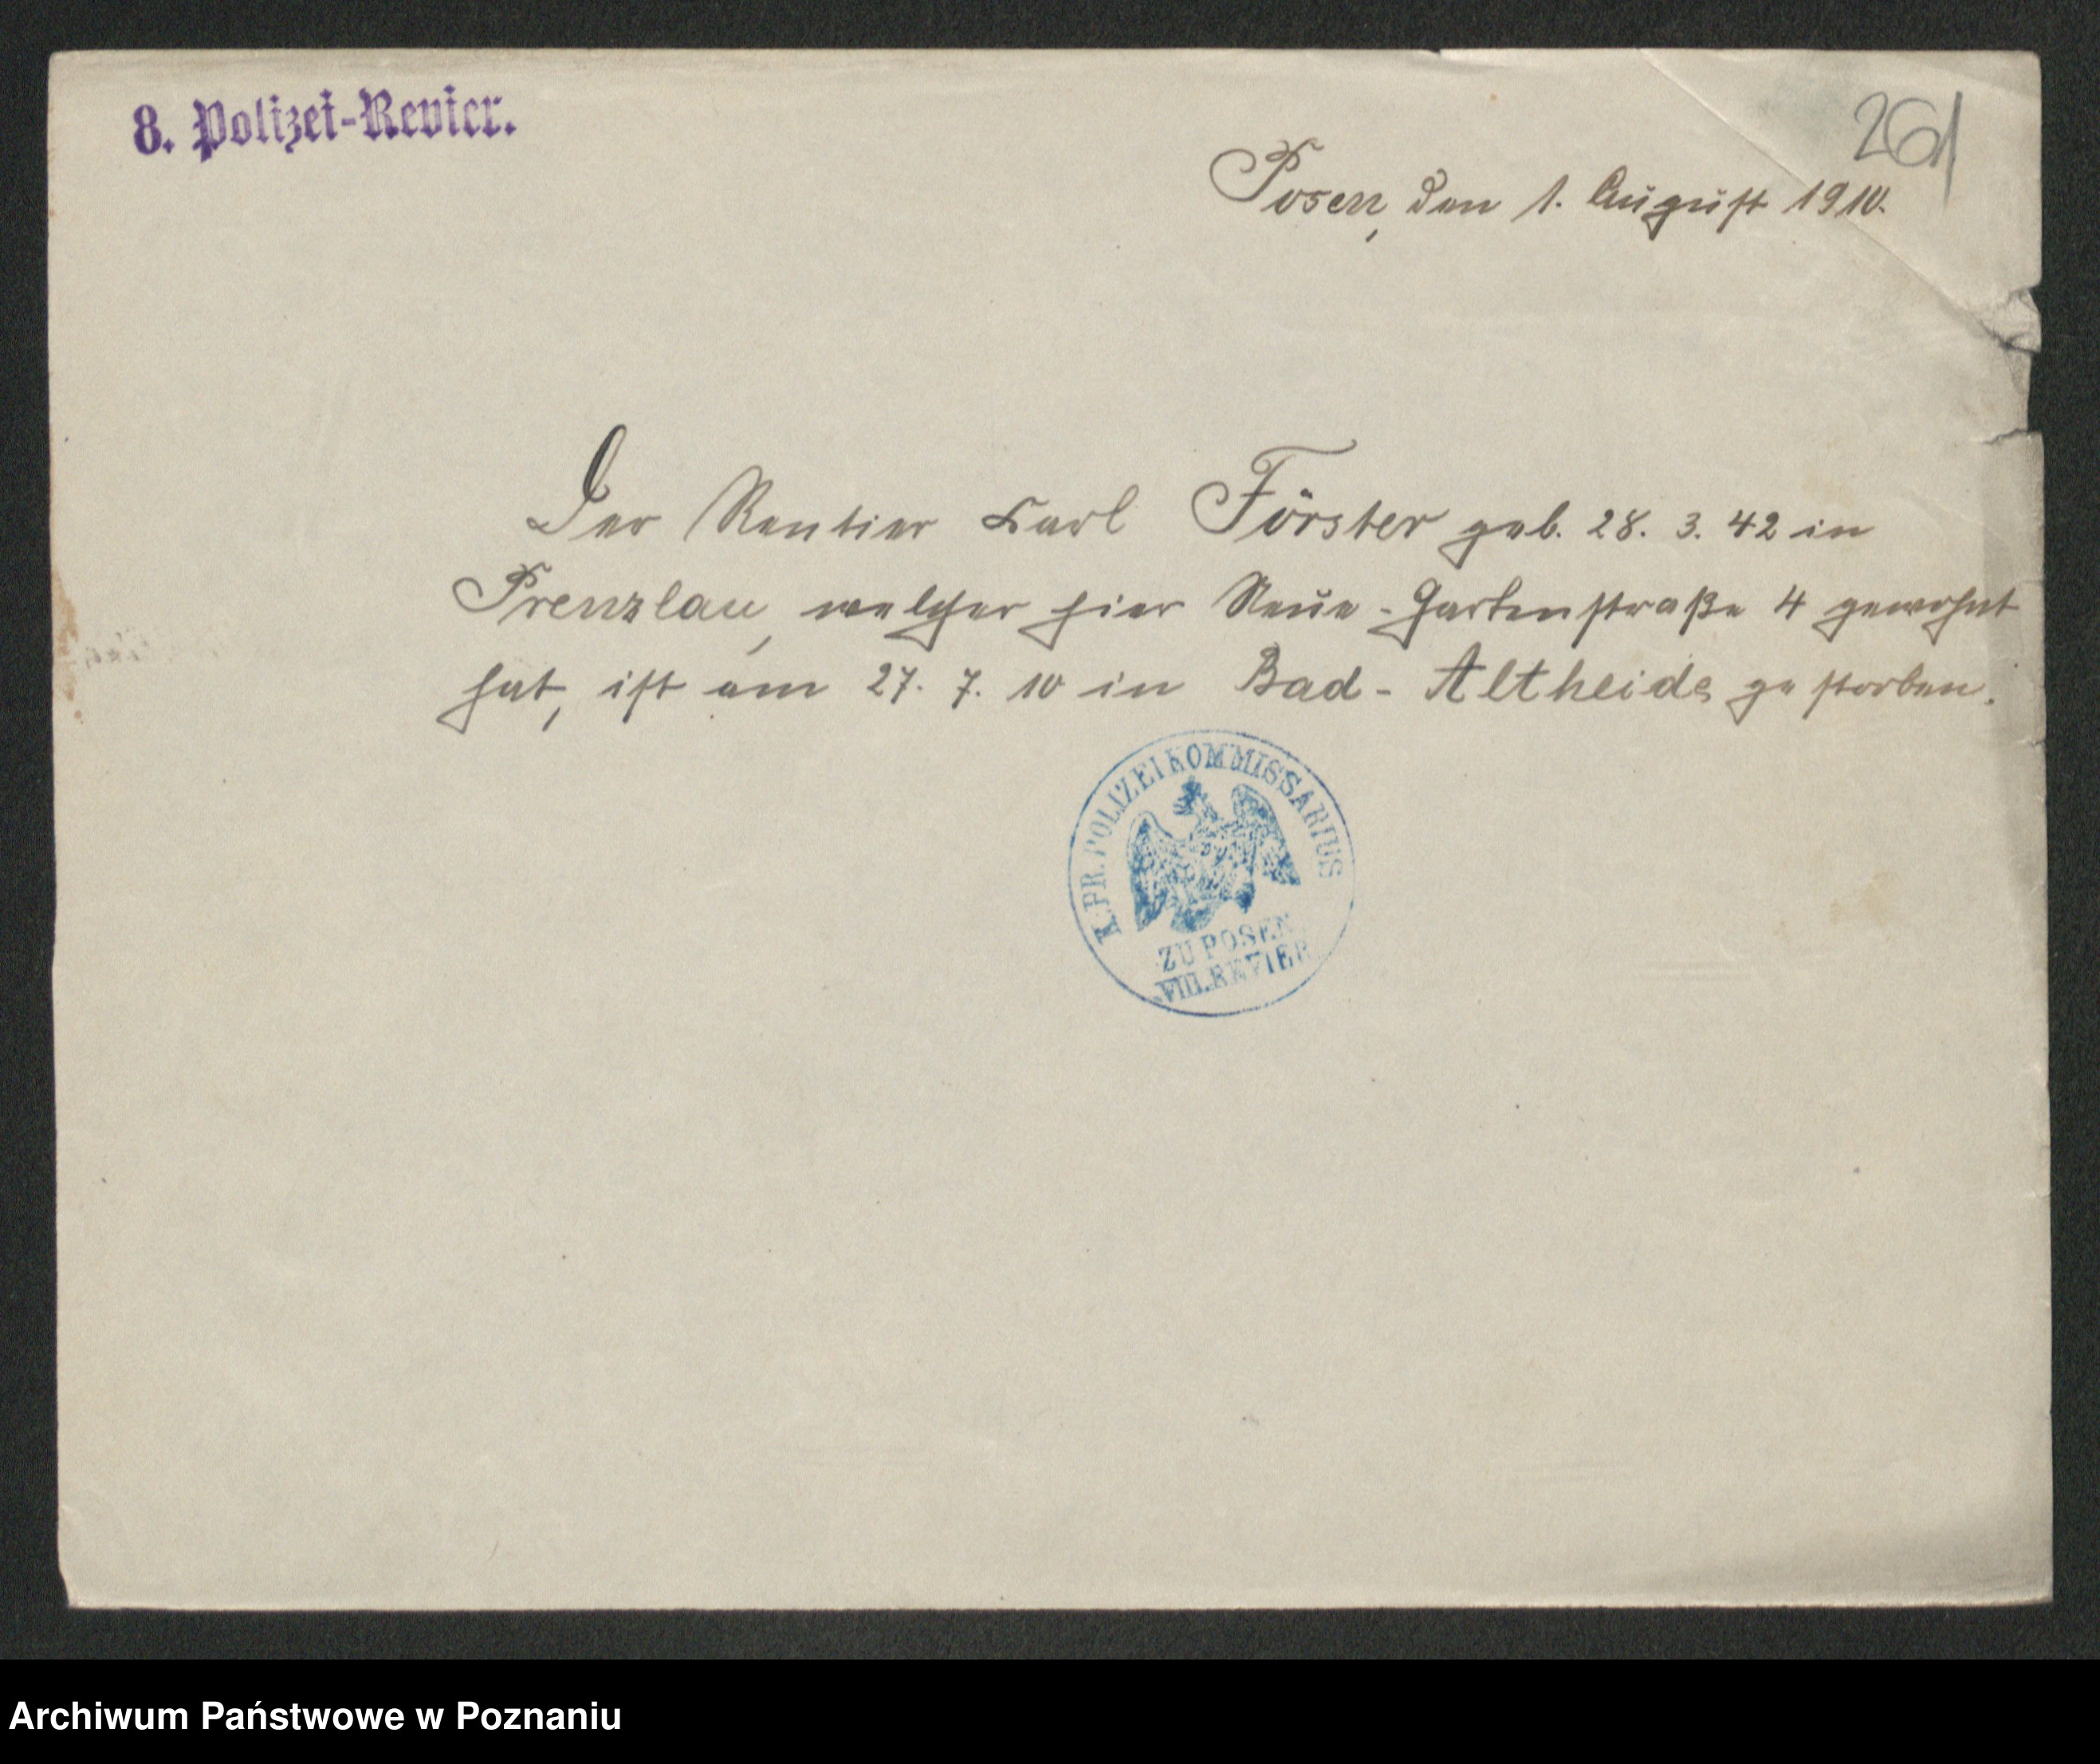 8. Polizei-Revier.
261
Posen, den 1. August 1910.
Der Rentier Karl Förster geb. 28. 3. 42 in
Prenzlau, welcher hier Neue-Gartenstraße 4 gewohnt
hat, ist am 27. 7. 10 in Bad-Altheide gestorben.
K. PR. POLIZEI KOMMISSARIUS
ZU POSEN
VIII. REVIER
Archiwum Państwowe w Poznaniu